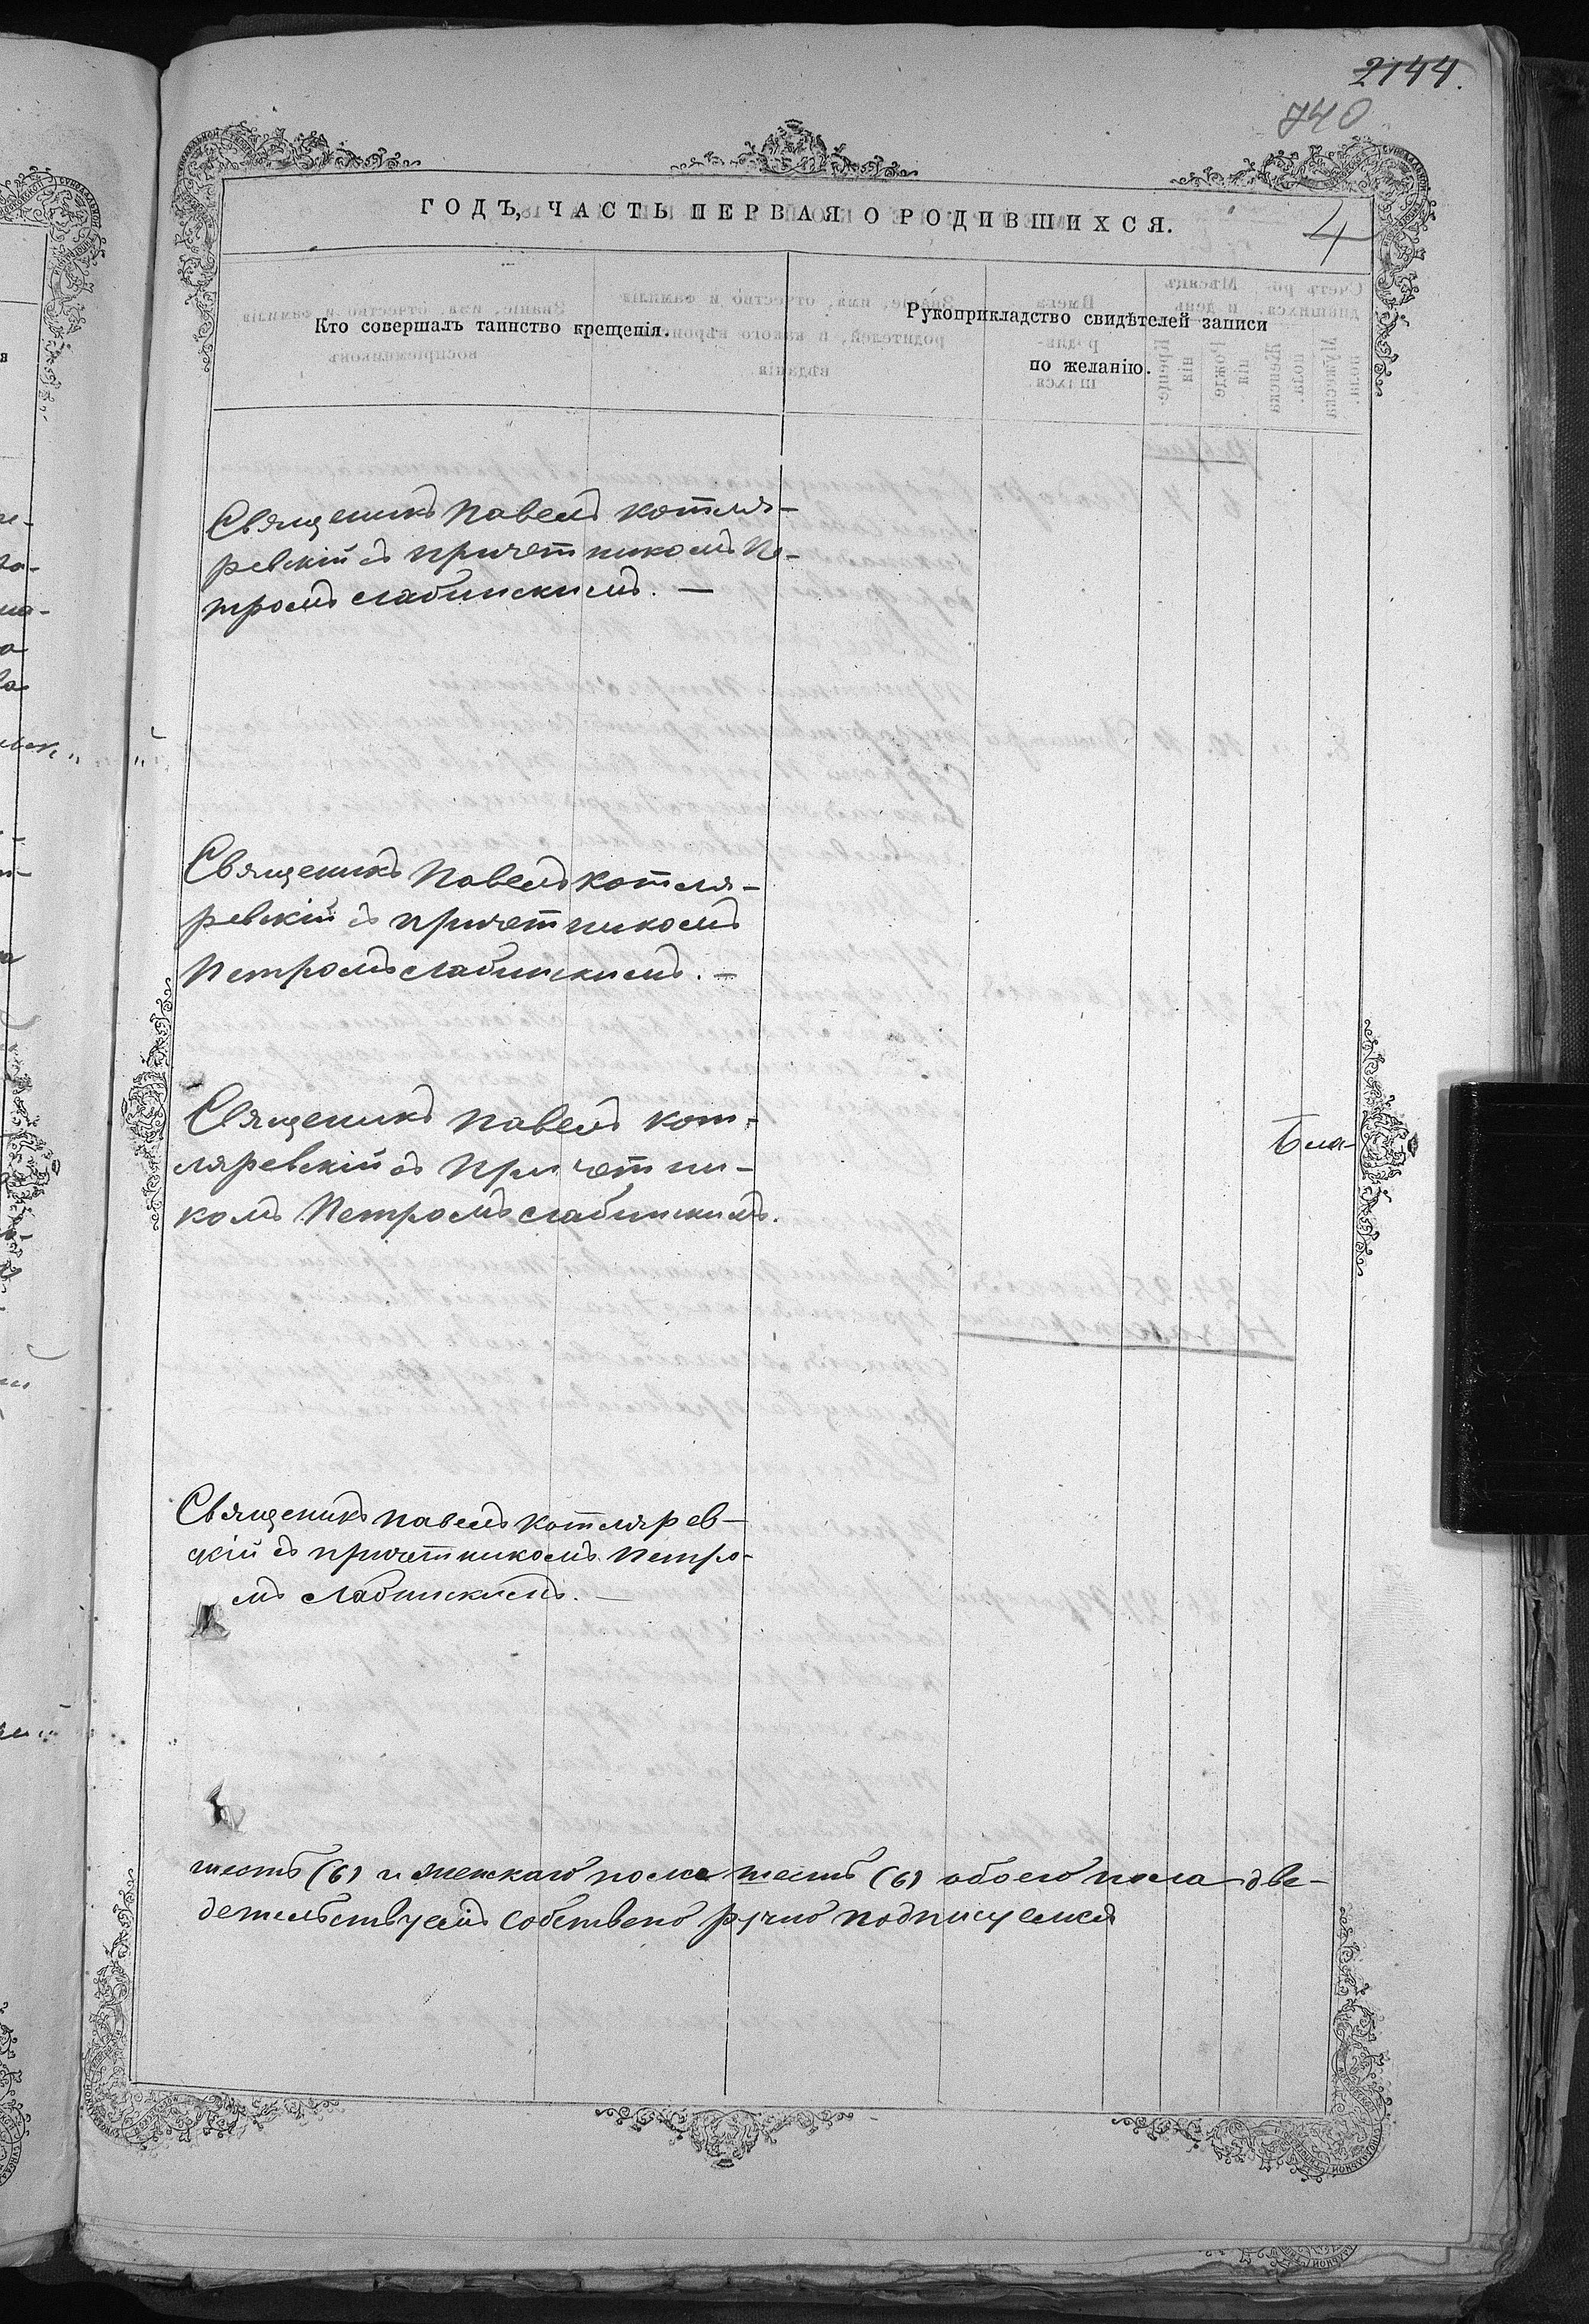 2144.
740
ГОДЪ, ЧАСТЬ ПЕРВАЯ О РОДИВШИХСЯ.
4
Кто совершалъ таинство крещенія.
Рукоприкладство свидѣтелей записи
по желанію.
Священикъ Павелъ Котля-
ревскій съ причетникомъ Пе-
тромъ Слабинскимъ. —
Священикъ Павелъ Котля-
ревскій съ причетникомъ
Петромъ Слабинскимъ. —
Священикъ Павелъ Кот-
ляревскій съ Причетни-
комъ Петромъ Слабинскимъ.
Священикъ Павелъ Котлярев-
скій съ причетникомъ Петро-
мъ Слабинскимъ. —
шесть (6) и женскаго пола шесть (6) обоего пола две-
детельствуемъ собствено ручно подписуемся